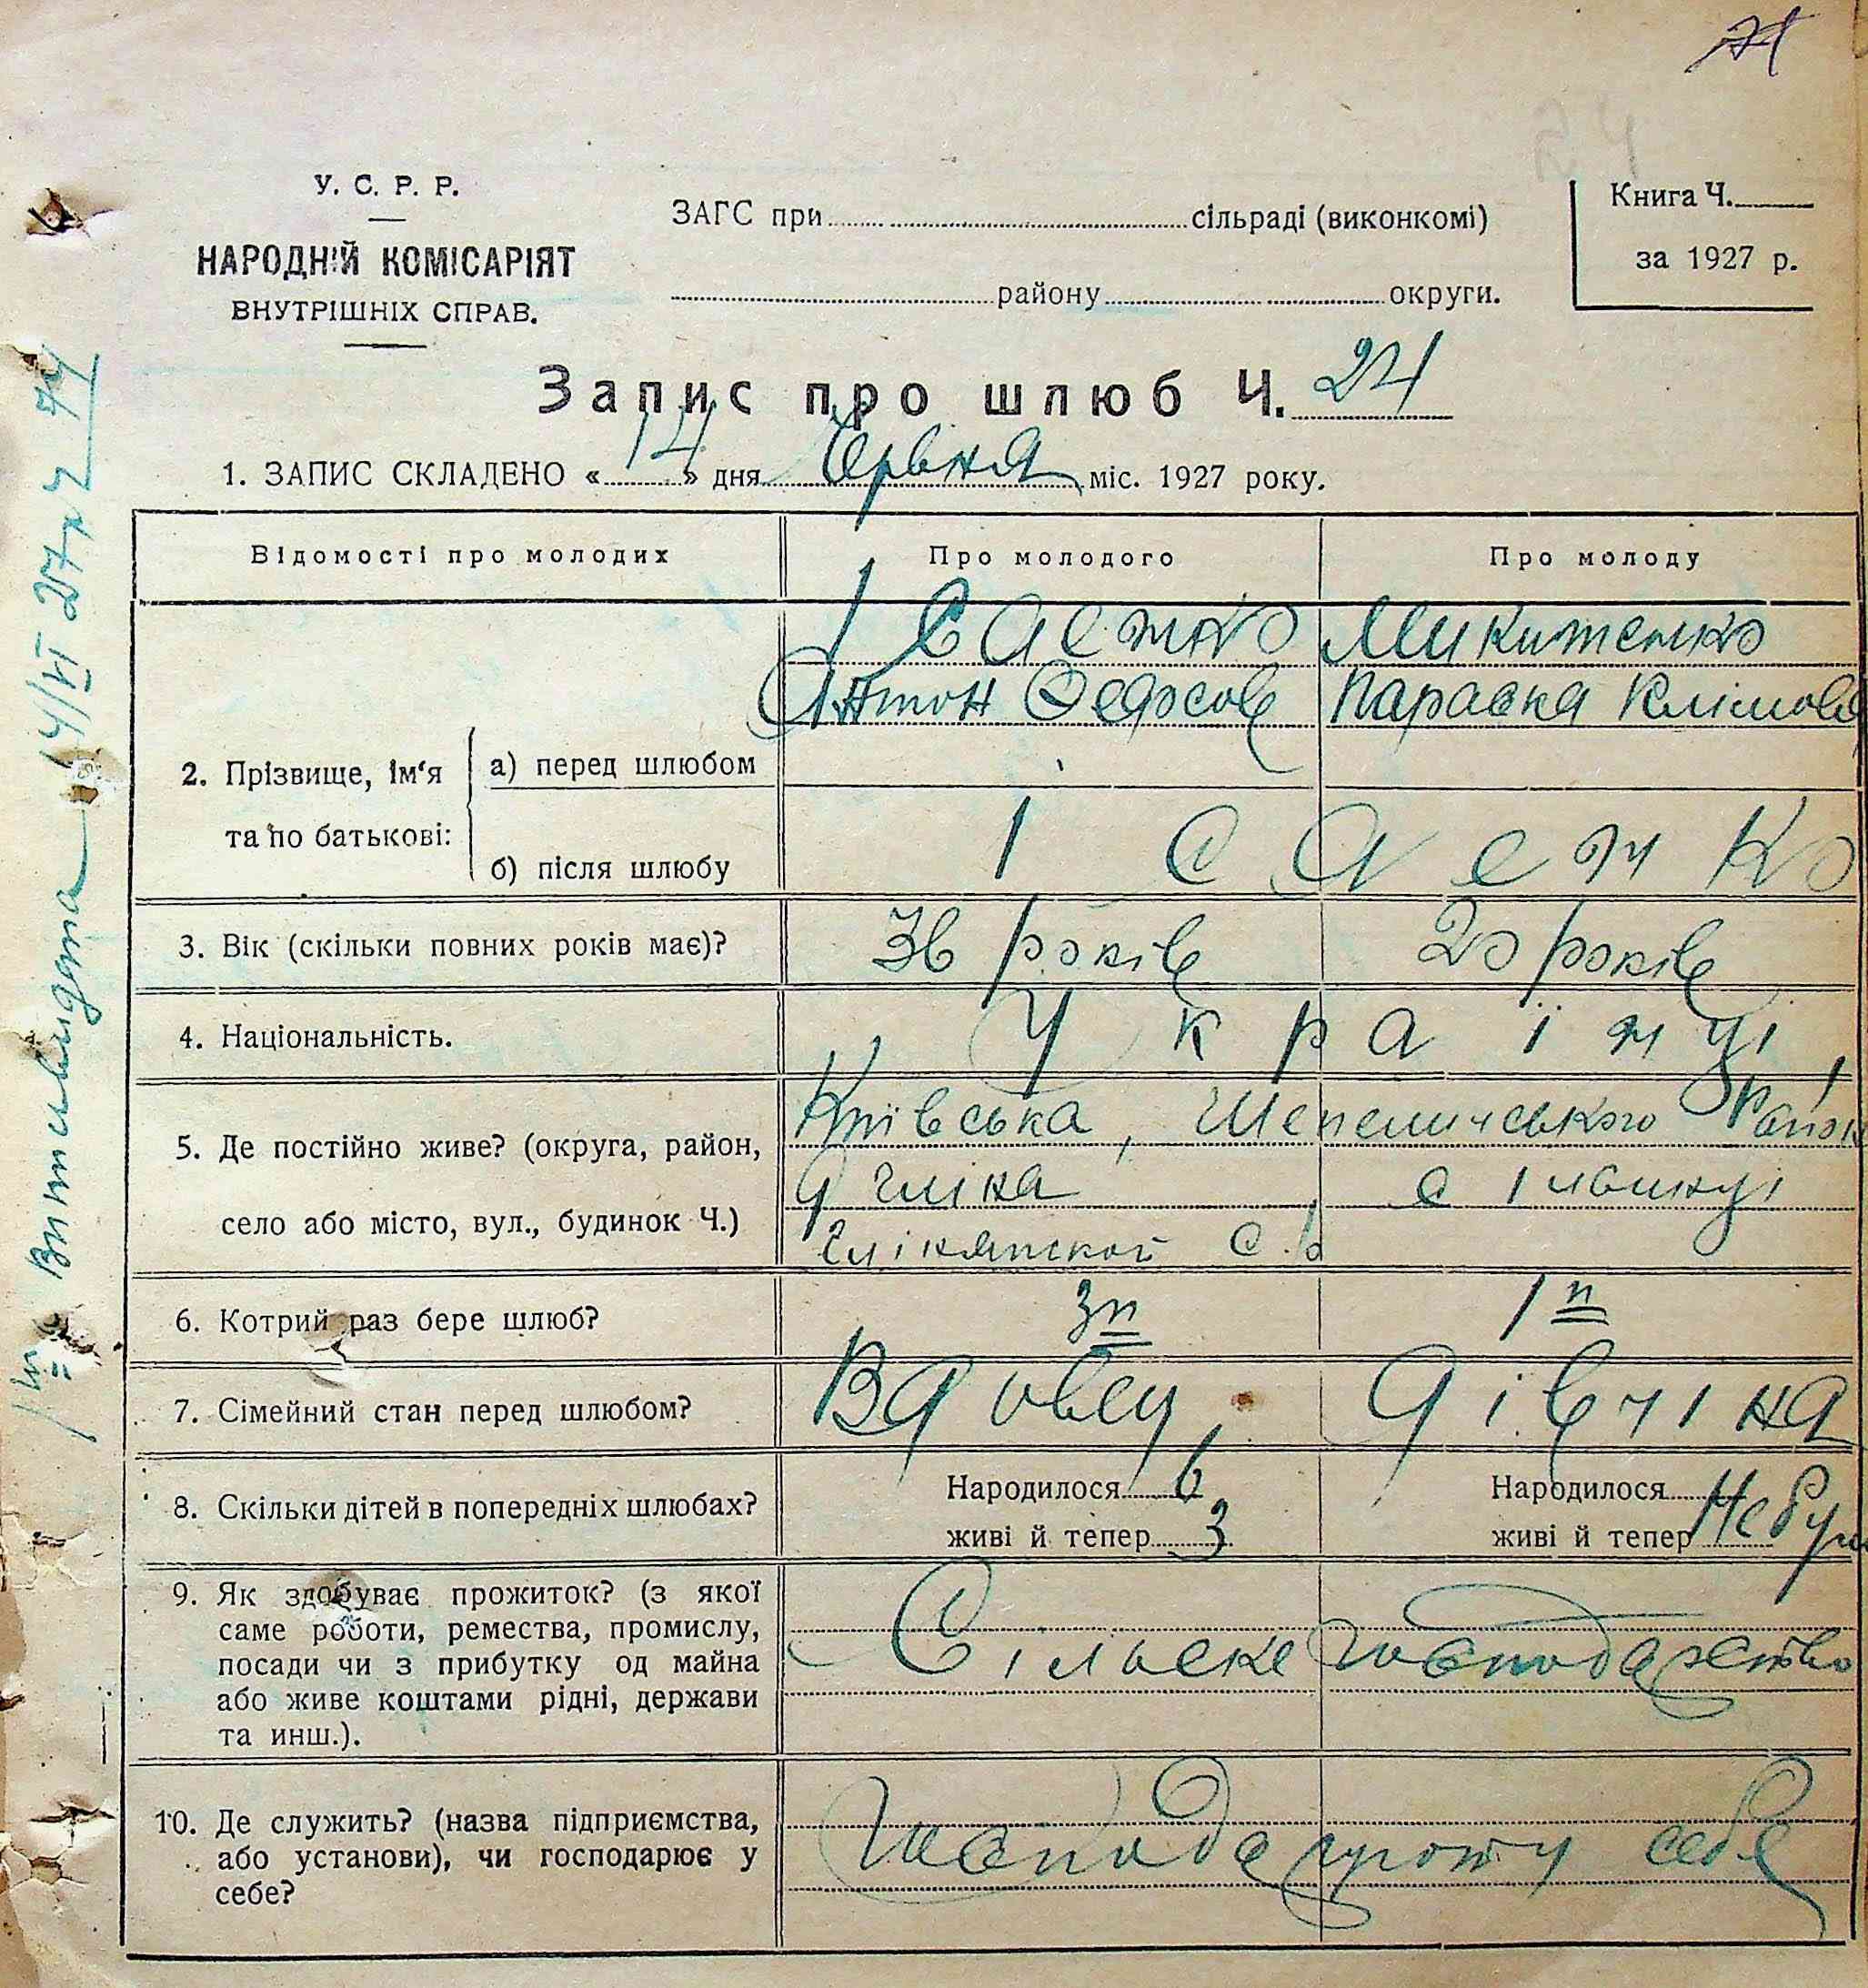 71
У. С. Р. Р.
НАРОДНІЙ КОМІСАРІЯТ
ВНУТРІШНІХ СПРАВ.
ЗАГС при сільраді (виконкомі)
району округи.
Книга Ч.
за 1927 р.
Запис про шлюб Ч. 24
1. ЗАПИС СКЛАДЕНО « 14 » дня Червня міс. 1927 року.
Відомості про молодих Про молодого Про молоду
Ісаенко Микитенко
Антон Федосов Параска Клімова
2. Прізвище, ім‘я та по батькові:
а) перед шлюбом
б) після шлюбу Ісаенко
3. Вік (скільки повних років має)? 36 років 20 років
4. Національність. Українці
5. Де постійно живе? (округа, район,
село або місто, вул., будинок Ч.)
Київська, Шепеличського Район
с Іловниці
6. Котрий раз бере шлюб? 3й 1й
7. Сімейний стан перед шлюбом? Вдовец Дівчіна
8. Скільки дітей в попередніх шлюбах?
Народилося 6 Народилося
живі й тепер 3 живі й тепер Небул
9. Як здобуває прожиток? (з якої
саме роботи, ремества, промислу,
посади чи з прибутку од майна
або живе коштами рідні, держави
та инш.).
Сільське господарство
10. Де служить? (назва підприємства,
або установи), чи господарює у
себе?
Господарують у себе
14/VI 27 р 74